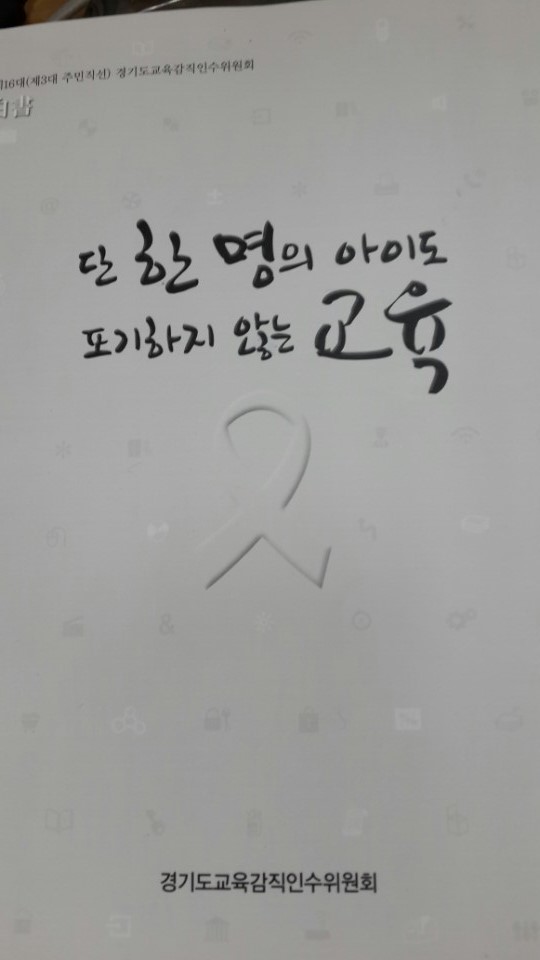 제16대(제3대 주민직선) 경기도교육감직인수위원회
白書
단 한 명의 아이도
포기하지 않는 교육
경기도교육감직인수위원회